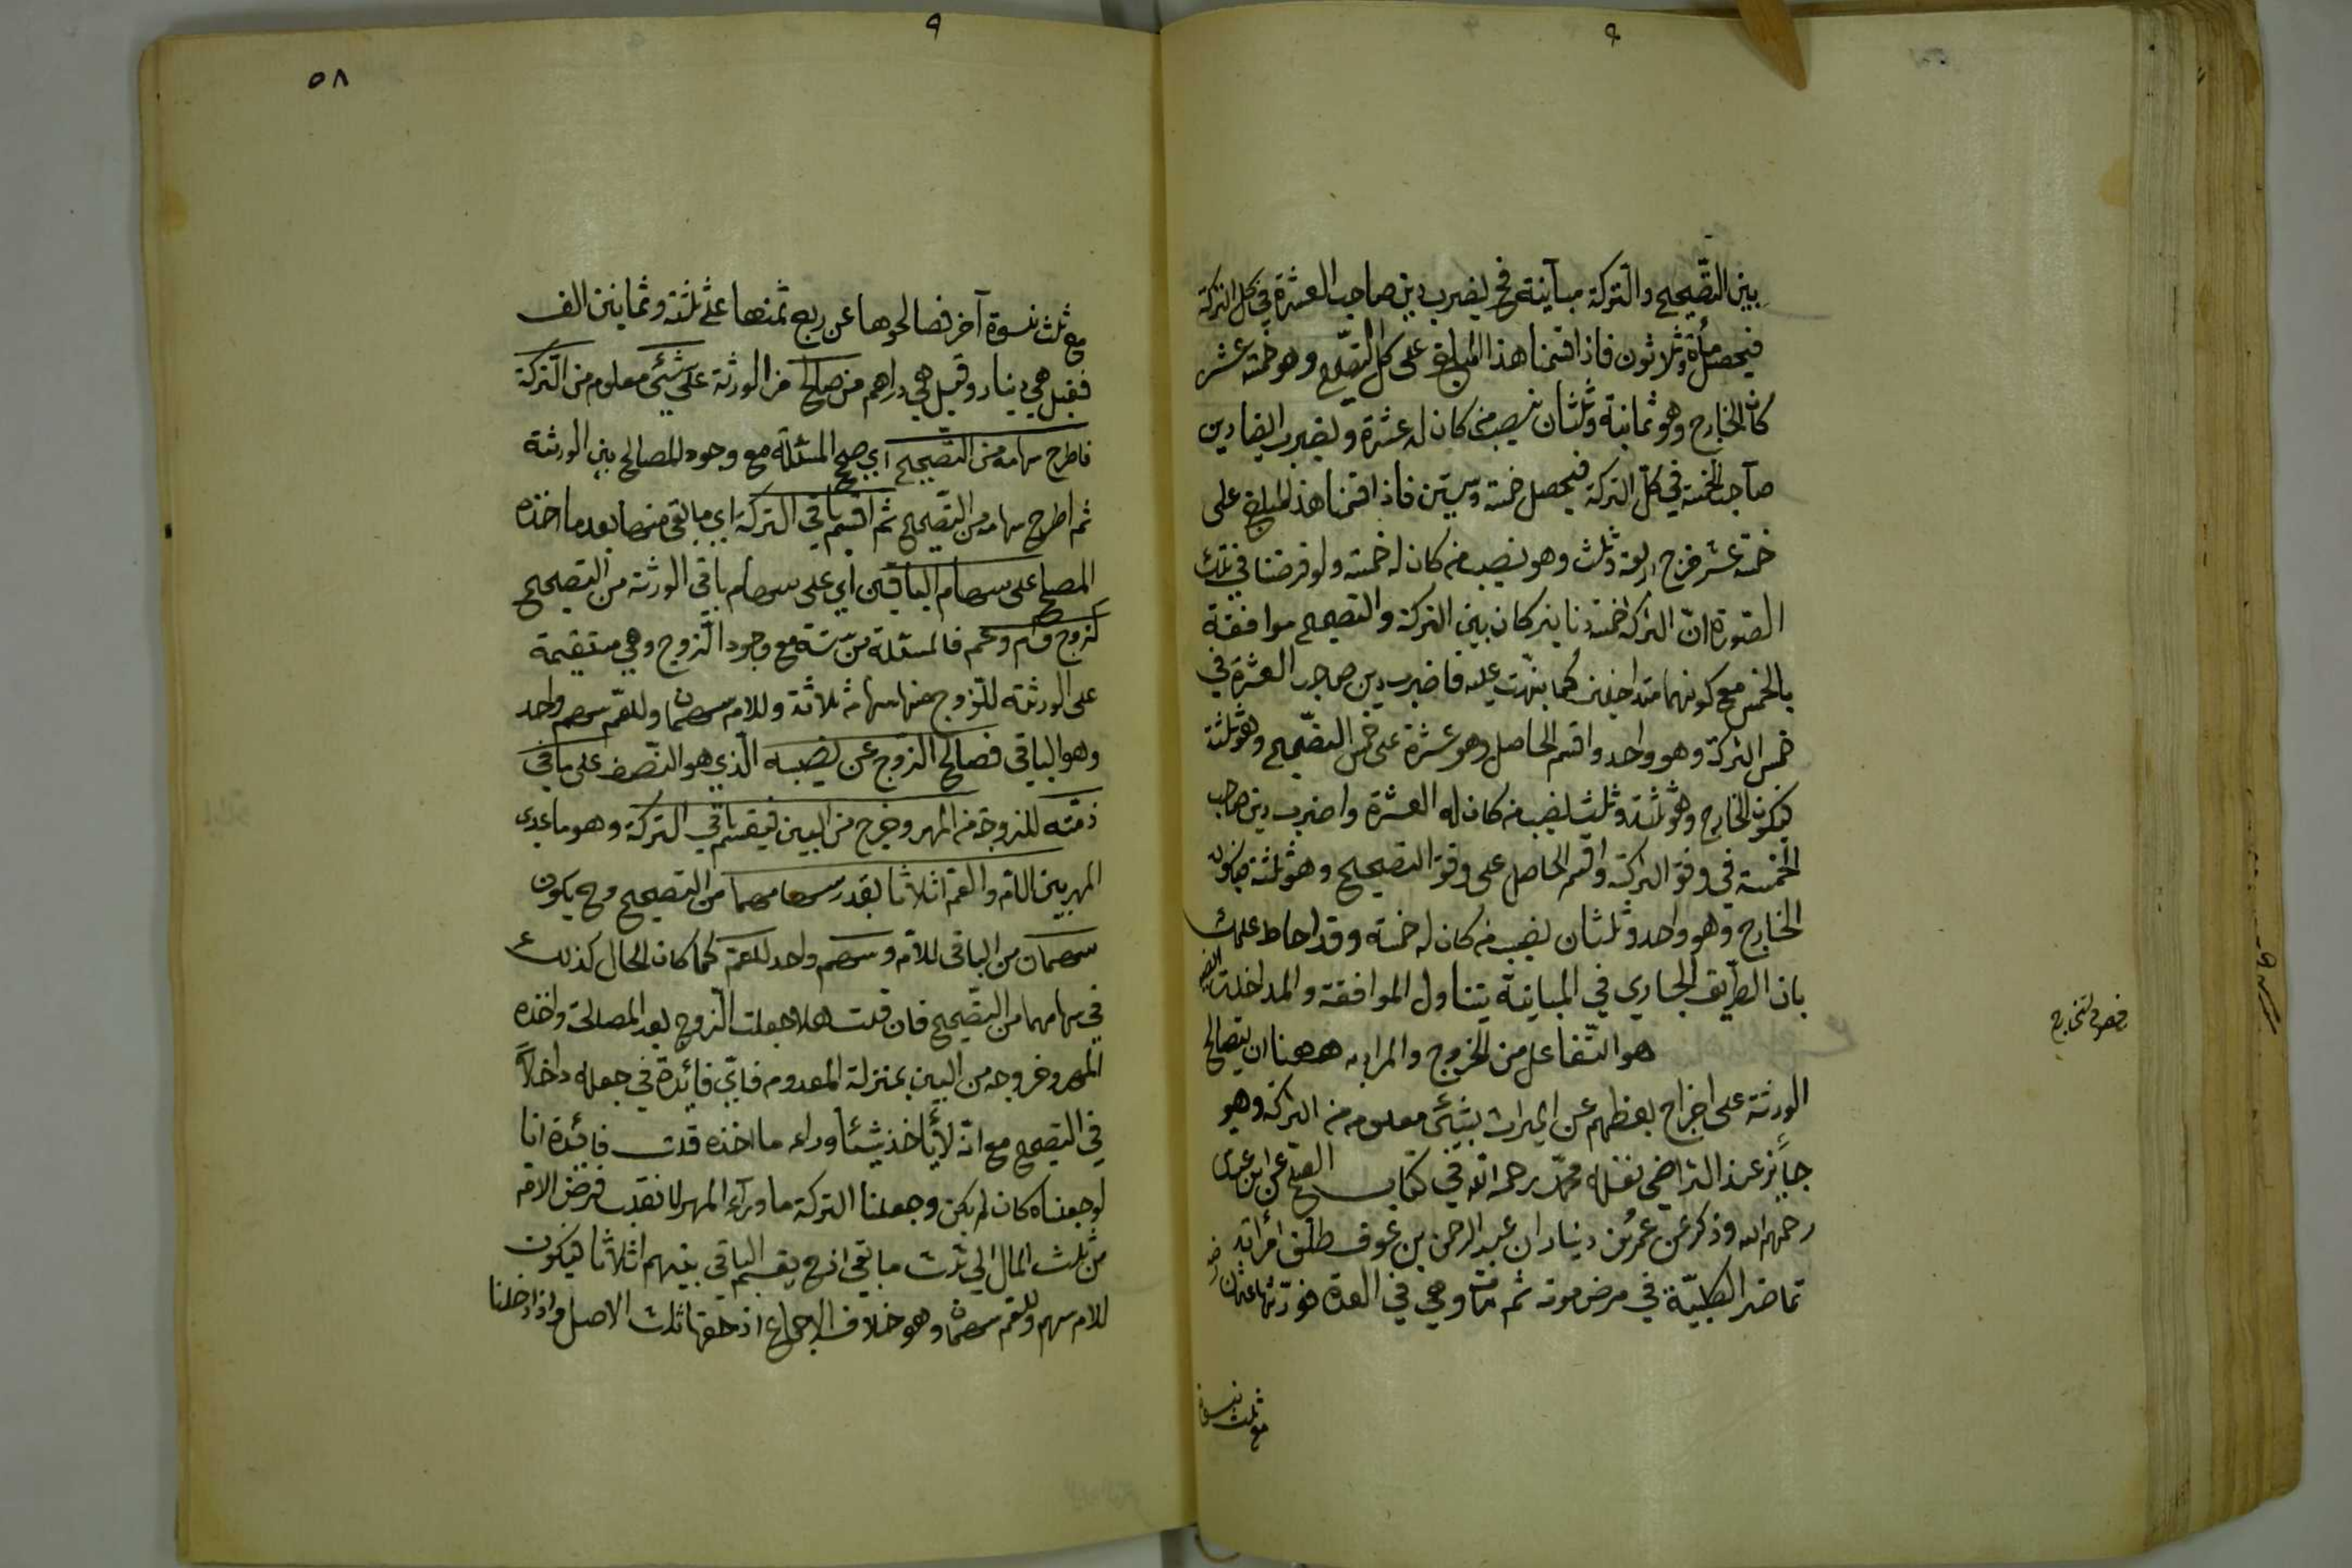 بين التصحيح والتركة مباينة فح يضرب دين صاحب العشرة في كل التركة
فيحصل مأة وثلاثون فاذا قسمنا هذا المبلغ على كل التصحيح وهو خمسة عشر
كان الخارج وهو ثمانية وثلثان نصيب من كان له عشرة ويضرب ايضا دين
صاحب الخمسة في كل التركة فيحصل خمسة وستين فاذا قسمنا هذا المبلغ على
خمسة عشر خرج اربعة وثلث وهو نصيب من كان له خمسة ولو فرضنا في تلك
الصورة ان التركة خمسة دنانير كان بين التركة والتصحيح موافقة
بالخمس مع كونهما متداخلين كما نبهت عليه فاضرب دين صاحب العشرة في
خمس التركة وهو واحد واقسم الحاصل وهو عشرة على خمس التصحيح وهو ثلثة
فيكون الخارج وهو ثلثة وثلث نصيب من كان له العشرة واضرب دين صاحب
الخمسة في وفق التركة واقسم الحاصل على وفق التصحيح وهو ثلثة فيكون
الخارج وهو واحد وثلثان نصيب من كان له خمسة وقد احاط علمك
بان الطريق الجاري في المباينة يتناول الموافقة والمداخلة ايضا
فصل في التخارج
هو التفاعل من الخروج والمراد به ههنا ان يتصالح
الورثة على اخراج بعضهم عن الميراث بشئ معلوم من التركة وهو
جائز عند التراضي نقله محمد رحمه الله في كتاب الصلح عن ابن عباس
رحمهم الله وذكر عن عمرو بن دينار ان عبد الرحمن بن عوف طلق امرأته
تماضر الكلبية في مرض موته ثم مات وهي في العدة فورثها عثمان رض
مع ثلث نسوة
٥٨
مع ثلث نسوة آخر فصالحوها عن ربع ثمنها على ثلثة وثمانين الف
فقيل هي دينار وقيل هي دراهم من صالح من الورثة على شئ معلوم من التركة
فاطرح سهامه من التصحيح اي صحح المسئلة مع وجود المصالح بين الورثة
ثم اطرح سهامه من التصحيح ثم اقسم باقي التركة اي ما بقي منها بعد ما اخذه
المصالح على سهام الباقين اي على سهام باقي الورثة من التصحيح
كزوج وام وعم فالمسئلة من ستة مع وجود الزوج وهي مستقيمة
على الورثة للزوج منها سهام ثلاثة وللام سهمان وللعم سهم واحد
وهو الباقي فصالح الزوج عن نصيبه الذي هو النصف على ما في
ذمته للزوجة من المهر وخرج من البين فيقسم باقي التركة وهو ما عدى
المهر بين الام والعم اثلاثا بقدر سهامهما من التصحيح وح يكون
سهمان من الباقي للام وسهم واحد للعم كما كان الحال كذلك
في سهامهما من التصحيح فان قلت هلا جعلت الزوج بعد المصالحة واخذه
المهر وخروجه من البين بمنزلة المعدوم فاي فائدة في جعله داخلا
في التصحيح مع انه لا يأخذ شيئا وراء ما اخذه قلت فائدة انا
لو جعلناه كان لم يكن وجعلنا التركة ما وراء المهر لانقلب فرض الام
من ثلث المال الى ثلث ما بقي اذ ح يقسم الباقي بينهم اثلاثا فيكون
للام سهم وللعم سهمان وهو خلاف الاجماع اذ حقها ثلث الاصل واذا ادخلنا